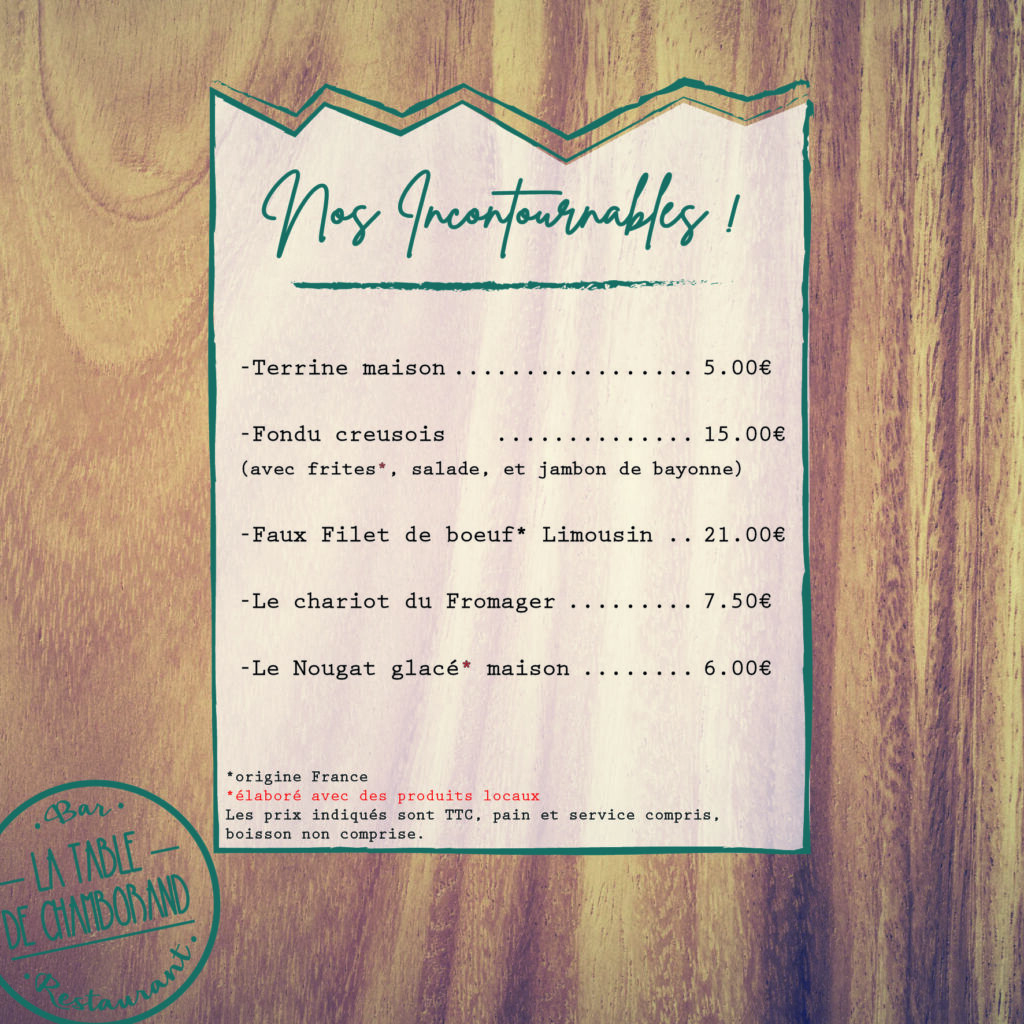 Nos Incontournables !
-Terrine maison ................. 5.00€
-Fondu creusois .............. 15.00€
(avec frites*, salade, et jambon de bayonne)
-Faux Filet de boeuf* Limousin .. 21.00€
-Le chariot du Fromager ......... 7.50€
-Le Nougat glacé* maison ........ 6.00€
*origine France
*élaboré avec des produits locaux
Les prix indiqués sont TTC, pain et service compris,
boisson non comprise.
Bar
LA TABLE
DE CHAMBORAND
Restaurant